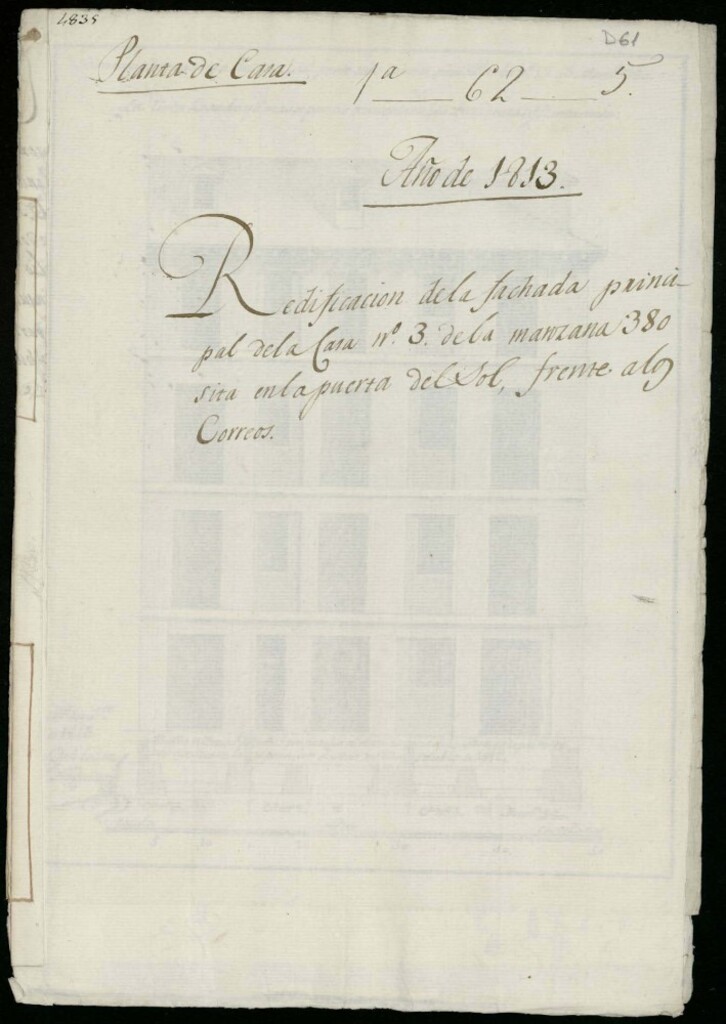 4835
D61
Planta de Casa.
1ª 62 5.
Año de 1813.
Redificacion de la fachada princi-
pal de la Casa nº. 3. de la manzana 380
sita en la puerta del Sol, frente a los
Correos.